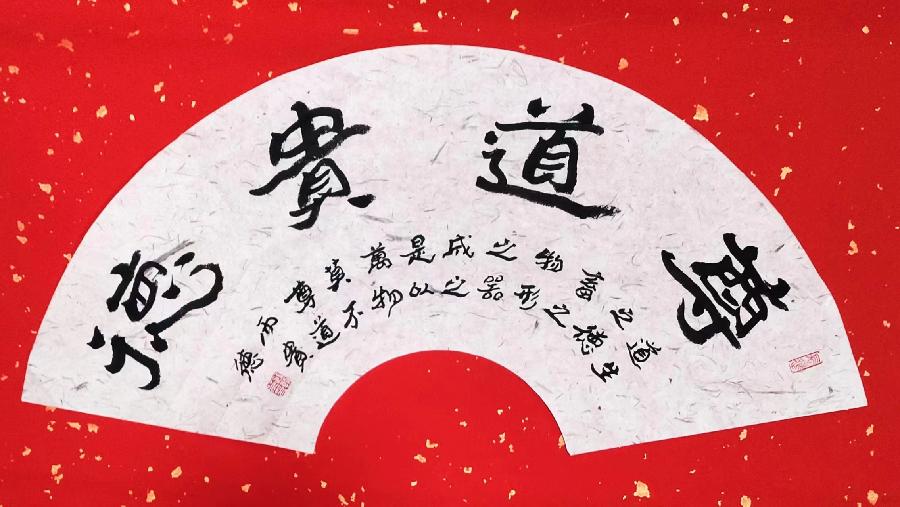 尊道貴德
道生
之德
畜之
物形
之器
成之
是以
萬物
莫不
尊道
而貴
德